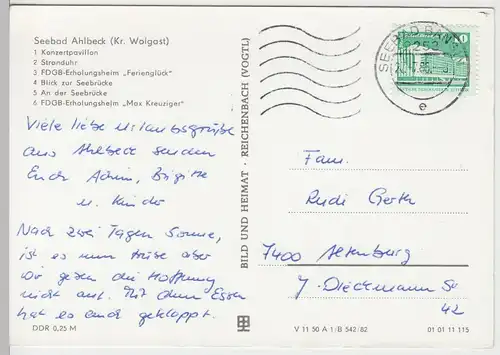 Seebad Ahlbeck (Kr. Wolgast)
1 Konzertpavillon
2 Stranduhr
3 FDGB-Erholungsheim „Ferienglück"
4 Blick zur Seebrücke
5 An der Seebrücke
6 FDGB-Erholungsheim „Max Kreuziger"
Viele liebe Urlaubsgrüße
aus Ahlbeck senden
Euch Achim, Brigitte
u. Kinder
Nach zwei Tagen Sonne,
ist es nun trübe aber
wir geben die Hoffnung
nicht auf. Mit dem Essen
hat es auch geklappt.
DDR 0,25 M
BILD UND HEIMAT · REICHENBACH (VOGTL)
SEEBAD
2253
e
10
Fam.
Rudi Gerth
7400 Altenburg
J.-Dieckmann Str
42
V 11 50 A 1/B 542/82
01 01 11 115